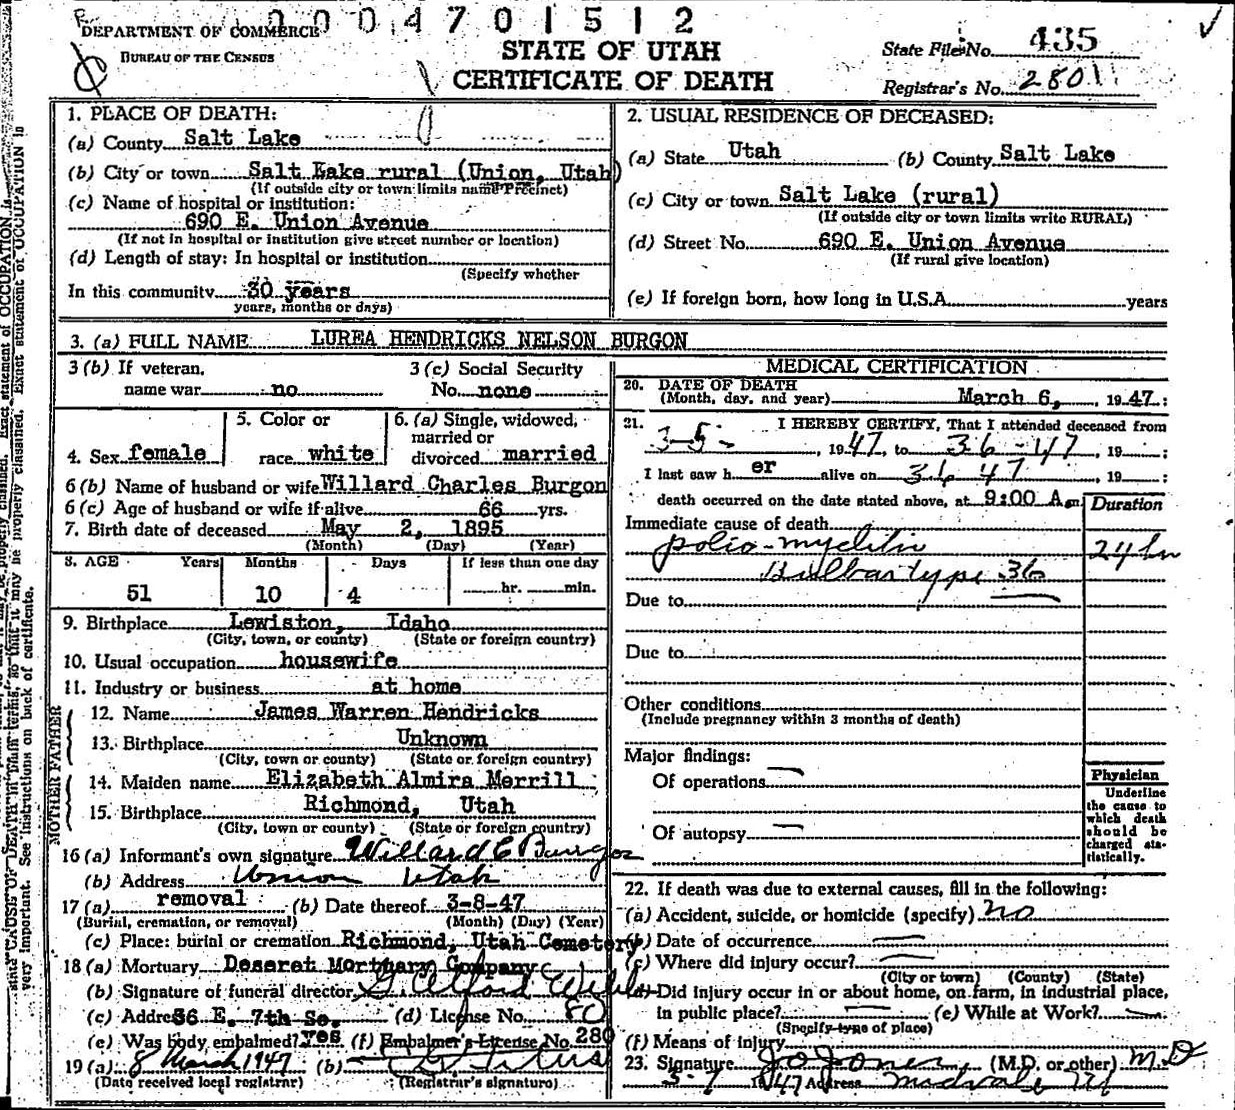 0 0 0 4 7 0 1 5 1 2
DEPARTMENT OF COMMERCE
BUREAU OF THE CENSUS
STATE OF UTAH
CERTIFICATE OF DEATH
State File No. 435
Registrar's No. 2801
1. PLACE OF DEATH:
(a) County Salt Lake
(b) City or town Salt Lake rural (Union, Utah)
(If outside city or town limits name Precinct)
(c) Name of hospital or institution:
690 E. Union Avenue
(If not in hospital or institution give street number or location)
(d) Length of stay: In hospital or institution
(Specify whether
In this community 30 years
years, months or days)
2. USUAL RESIDENCE OF DECEASED:
(a) State Utah (b) County Salt Lake
(c) City or town Salt Lake (rural)
(If outside city or town limits write RURAL)
(d) Street No. 690 E. Union Avenue
(If rural give location)
(e) If foreign born, how long in U.S.A. years
3. (a) FULL NAME LUREA HENDRICKS NELSON BURGON
3 (b) If veteran,
name war no
3 (c) Social Security
No. none
4. Sex female
5. Color or
race white
6. (a) Single, widowed,
married or
divorced married
6 (b) Name of husband or wife Willard Charles Burgon
6 (c) Age of husband or wife if alive 66 yrs.
7. Birth date of deceased May 2, 1895
(Month) (Day) (Year)
8. AGE Years Months Days If less than one day
51 10 4 hr. min.
9. Birthplace Lewiston, Idaho
(City, town, or county) (State or foreign country)
10. Usual occupation housewife
11. Industry or business at home
FATHER
12. Name James Warren Hendricks
13. Birthplace Unknown
(City, town or county) (State or foreign country)
MOTHER
14. Maiden name Elizabeth Almira Merrill
15. Birthplace Richmond, Utah
(City, town or county) (State or foreign country)
16 (a) Informant's own signature Willard C Burgon
(b) Address Union Utah
17 (a) removal (b) Date thereof 3-8-47
(Burial, cremation, or removal) (Month) (Day) (Year)
(c) Place: burial or cremation Richmond, Utah Cemetery
18 (a) Mortuary Deseret Mortuary Company
(b) Signature of funeral director
(c) Address 36 E. 7th So. (d) License No. 80
(e) Was body embalmed? Yes (f) Embalmer's License No. 280
19 (a) 8 March 1947 (b)
(Date received local registrar) (Registrar's signature)
MEDICAL CERTIFICATION
20. DATE OF DEATH
(Month, day, and year) March 6, 1947:
21. I HEREBY CERTIFY, That I attended deceased from
3-5-, 1947, to 3-6-47, 19 ;
I last saw h er alive on 3 6 47, 19 ;
death occurred on the date stated above, at 9:00 A.m.
Duration
Immediate cause of death
polio-myelitis 24 hr
Bulbar type 36
Due to
Due to
Other conditions
(Include pregnancy within 3 months of death)
Major findings:
Of operations
Of autopsy
Physician
Underline
the cause to
which death
should be
charged sta-
tistically.
22. If death was due to external causes, fill in the following:
(a) Accident, suicide, or homicide (specify) no
(b) Date of occurrence
(c) Where did injury occur?
(City or town) (County) (State)
(d) Did injury occur in or about home, on farm, in industrial place,
in public place? (e) While at Work?
(Specify type of place)
(f) Means of injury
23. Signature J O Jones (M.D. or other) M.D
1947 Address Midvale